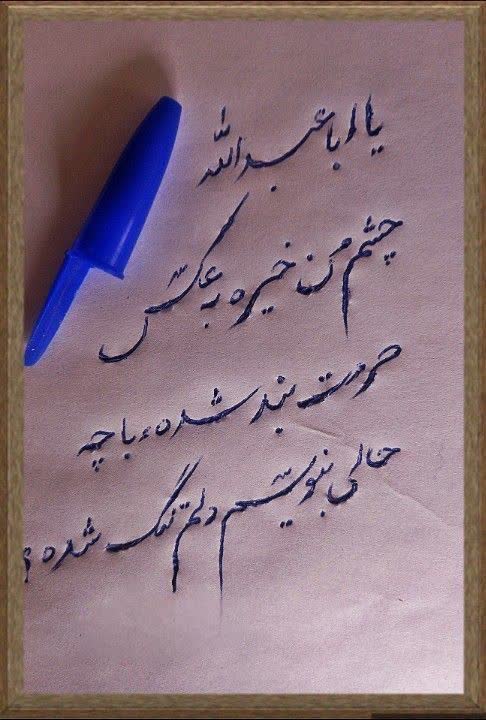 یا اباعبدالله
چشم من خیره به عکس
حرمت بند شده، با چه
حالی بنویسم دلم تنگ شده؟